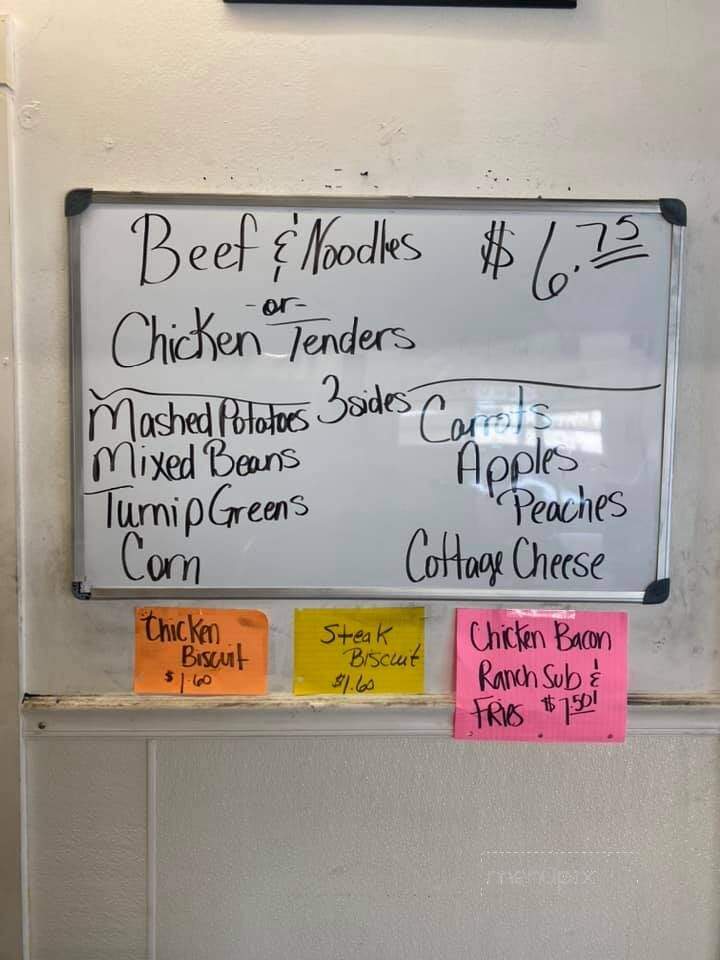 Beef & Noodles $6.75
-or-
Chicken Tenders
3 sides
Mashed Potatoes
Mixed Beans
Turnip Greens
Corn
Carrots
Apples
Peaches
Cottage Cheese
Chicken
Biscuit
$1.60
Steak
Biscuit
$1.60
Chicken Bacon
Ranch Sub &
Fries $7.50!
menupix